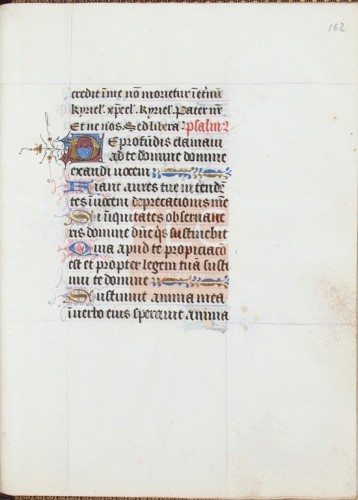 162
credit in me nō morietur ī etnū
kyriel'. xpel'. kyriel'. Pater nr̄
Et ne nos. Sed libera. psalm9
De profūdis clamaui
ad te domine domine
exaudi uocem
Fiant aures tue intendē
tes ī uocem deprecacionis mee
Si īniquitates obseruaue
ris domine dn̄e qͥs sustinebit
Quia apud te propiciacio
est et propter legem tuā susti
nui te domine
Sustinuit anima mea
ī uerbo eius sperauit anima